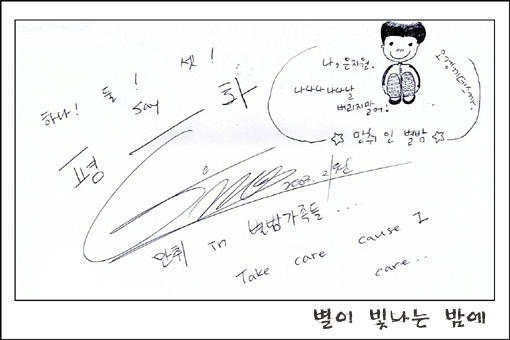 하나! 둘! 셋!
Say
평 — 화
나, 은지원.
나나나나나날
버리지말어.
☆ 만취 인 별밤 ☆
2003. 2/
만취 in 별밤가족들....
Take care cause I
care...
별이 빛나는 밤에